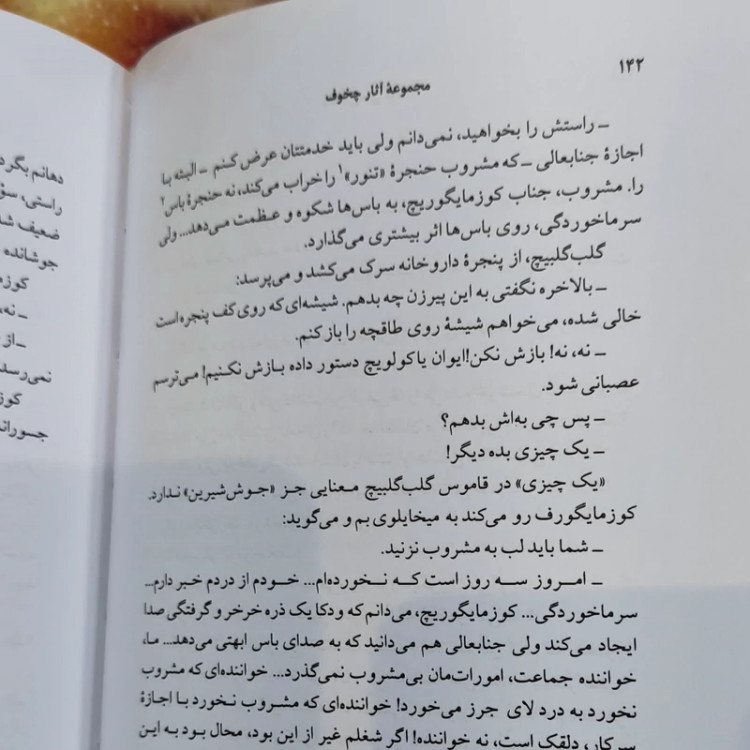 ۱۴۲
مجموعهٔ آثار چخوف
ـ راستش را بخواهید، نمی‌دانم ولی باید خدمتتان عرض کنم ـ البته با
اجازهٔ جنابعالی ـ که مشروب حنجرهٔ «تنور»۱ را خراب می‌کند، نه حنجرهٔ باس۲
را. مشروب، جناب کوزمایگوریچ، به باس‌ها شکوه و عظمت می‌دهد... ولی
سرماخوردگی، روی باس‌ها اثر بیشتری می‌گذارد.
گلب‌گلبیچ، از پنجرهٔ داروخانه سرک می‌کشد و می‌پرسد:
ـ بالاخره نگفتی به این پیرزن چه بدهم. شیشه‌ای که روی کف پنجره است
خالی شده، می‌خواهم شیشهٔ روی طاقچه را باز کنم.
ـ نه، نه! بازش نکن! ایوان یاکولویچ دستور داده بازش نکنیم! می‌ترسم
عصبانی شود.
ـ پس چی به‌اش بدهم؟
ـ یک چیزی بده دیگر!
«یک چیزی» در قاموس گلب‌گلبیچ معنایی جز «جوش‌شیرین» ندارد.
کوزمایگورف رو می‌کند به میخایلوی بم و می‌گوید:
ـ شما باید لب به مشروب نزنید.
ـ امروز سه روز است که نخورده‌ام... خودم از دردم خبر دارم...
سرماخوردگی... کوزمایگوریچ، می‌دانم که ودکا یک ذره خرخر و گرفتگی صدا
ایجاد می‌کند ولی جنابعالی هم می‌دانید که به صدای باس ابهتی می‌دهد... ما،
خواننده جماعت، امورات‌مان بی‌مشروب نمی‌گذرد... خواننده‌ای که مشروب
نخورد به درد لای جرز می‌خورد! خواننده‌ای که مشروب نخورد با اجازهٔ
سرکار، دلقک است، نه خواننده! اگر شغلم غیر از این بود، محال بود به این
دهانم بگرد
راستی، سؤ
ضعیف شد
جوشانده
کوزم
ـ نه،
ـ از
نمی‌رسد
کوز
جسورانه